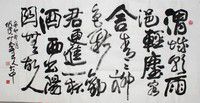 渭城朝雨
浥輕塵客
舍青青柳
色新勸
君更進一杯
酒西出陽
關無故人